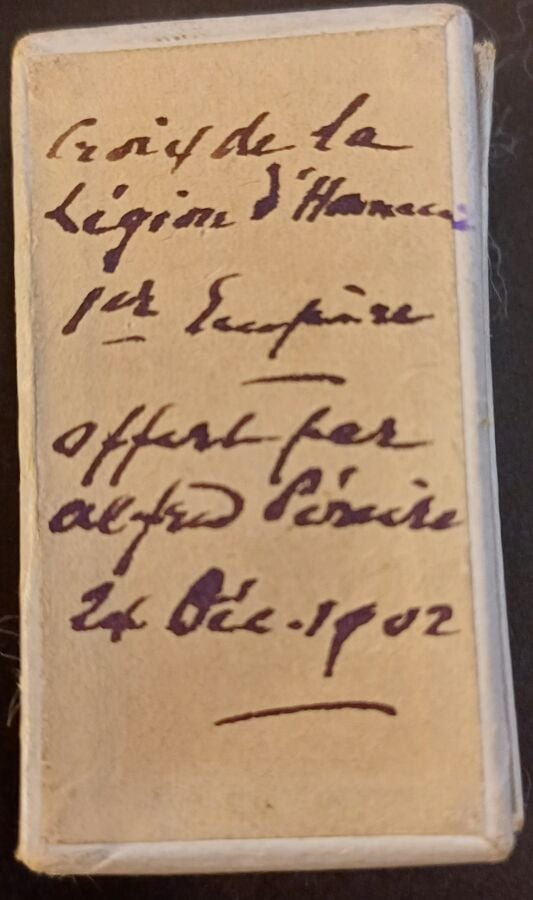 Croix de la
Légion d'Honneur
1er Empire
offert par
Alfred Péreire
24 Déc. 1902